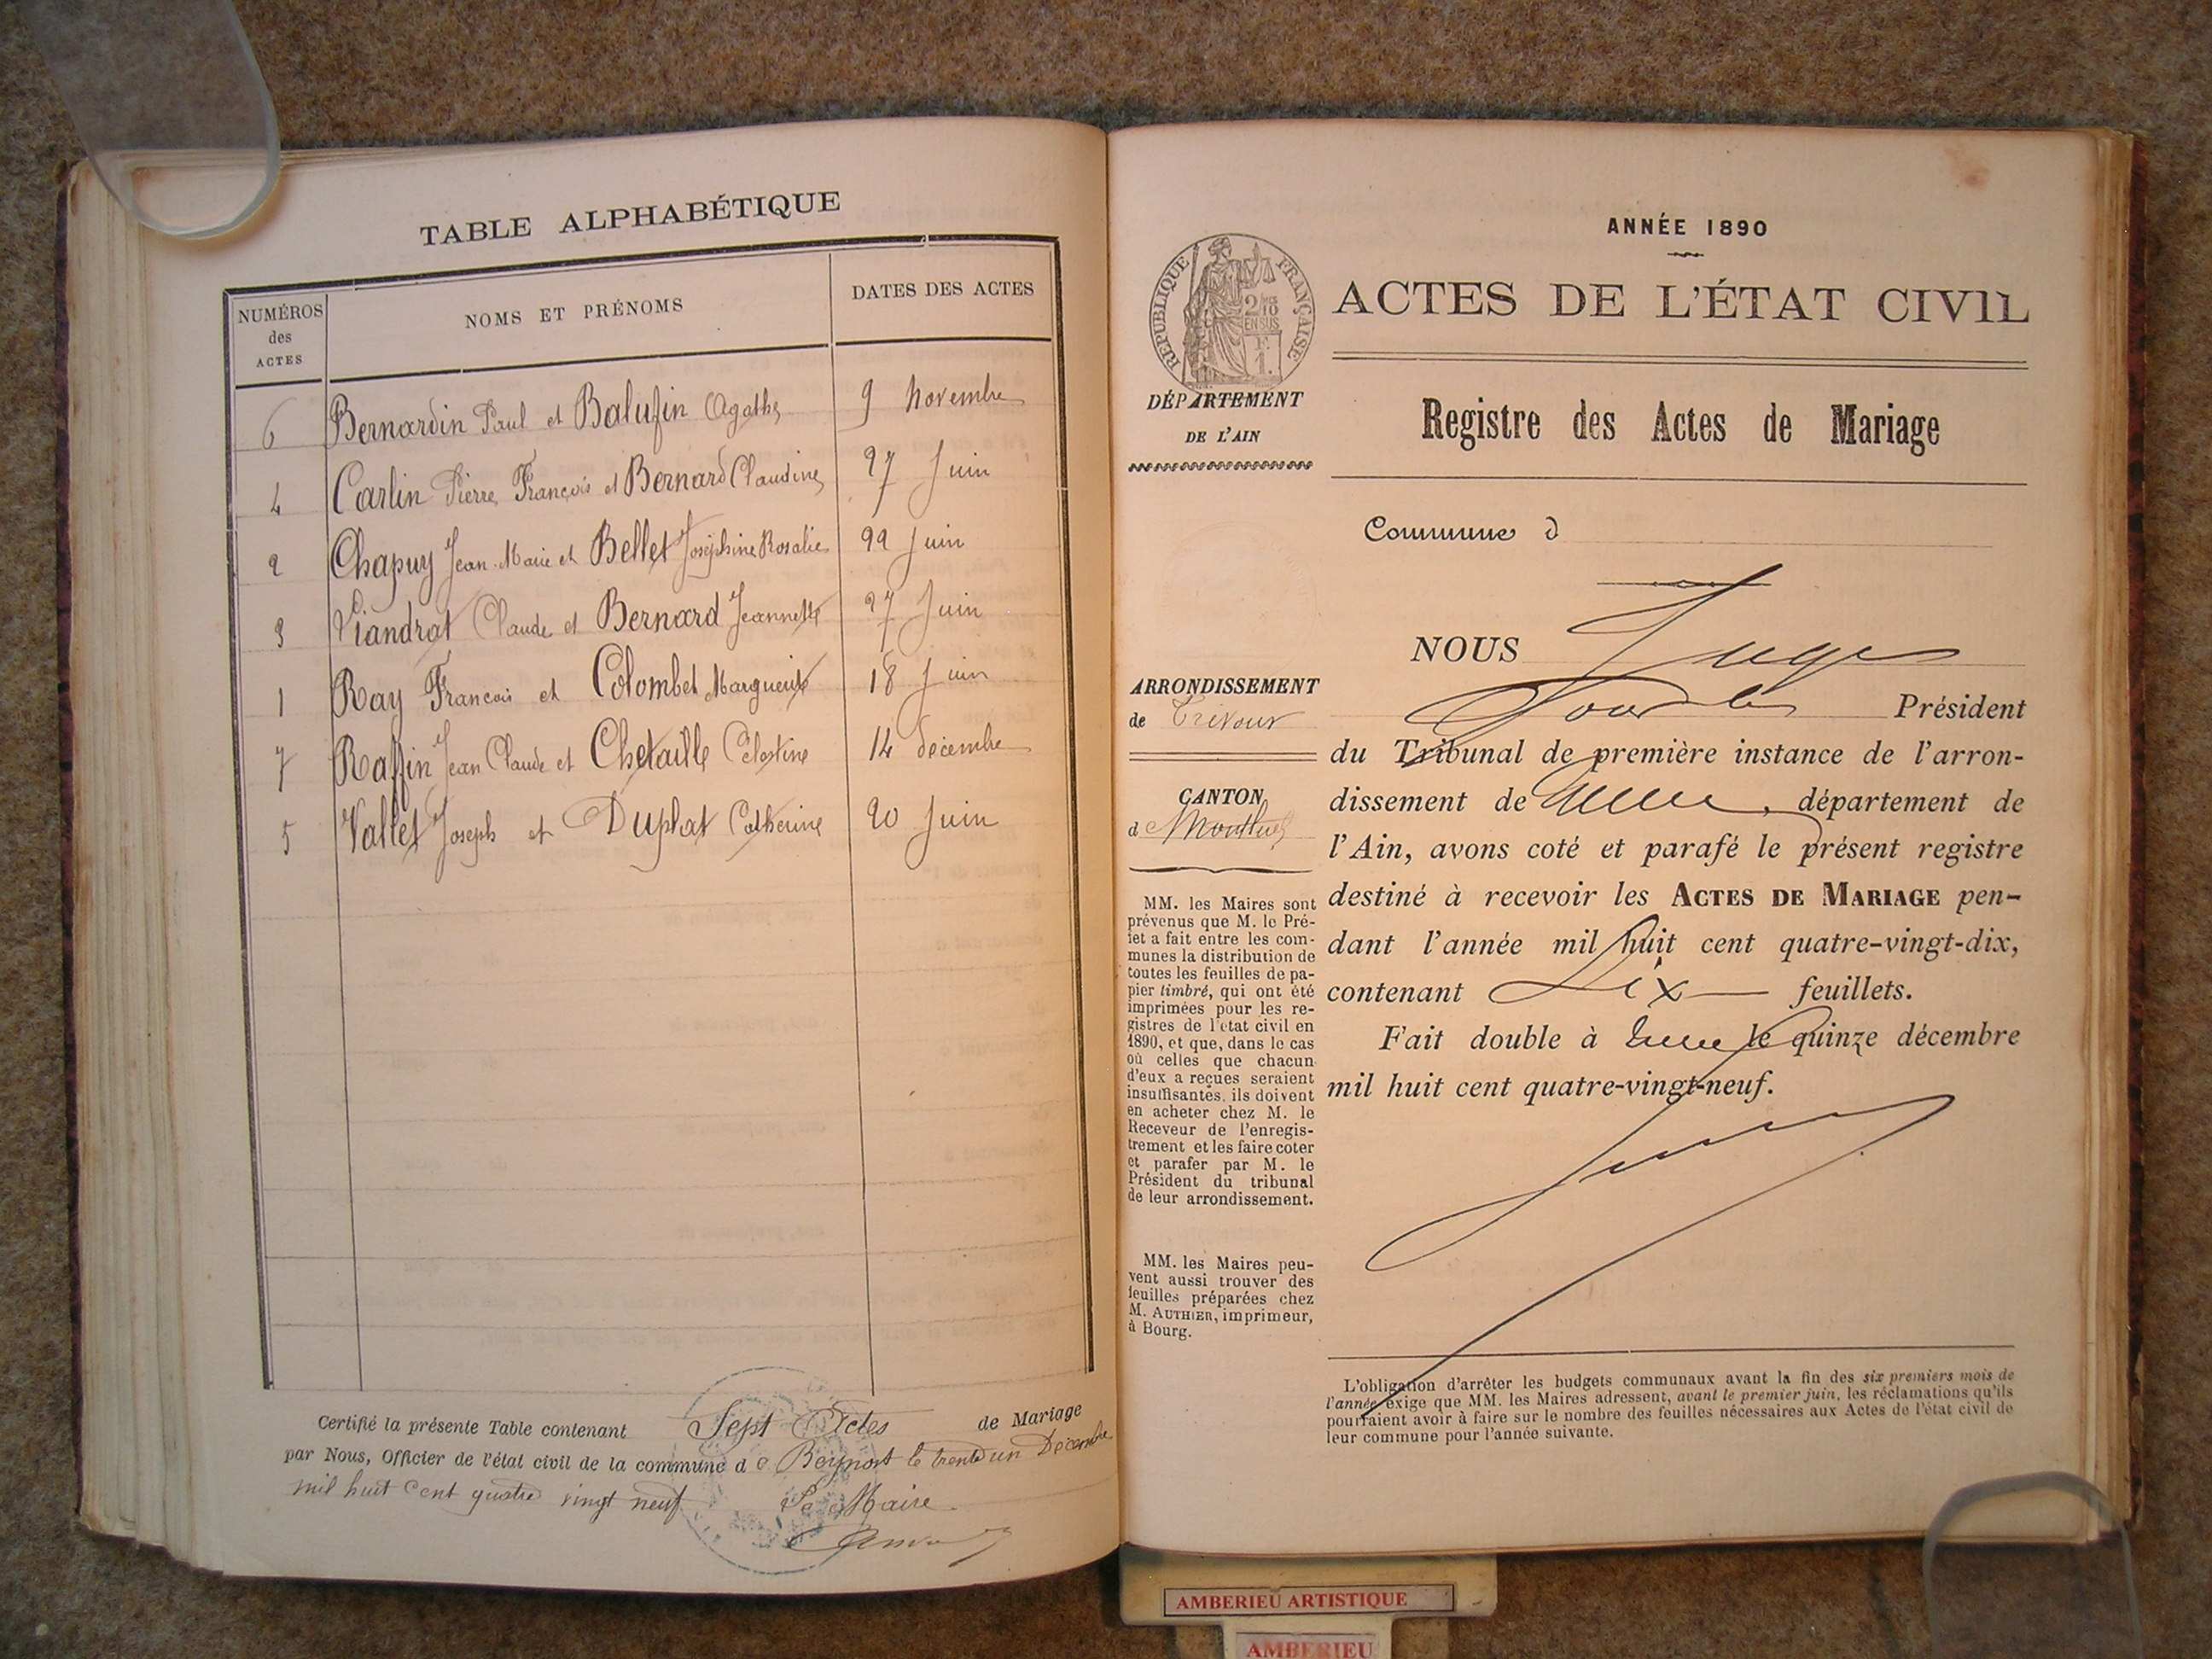 TABLE ALPHABÉTIQUE
NUMÉROS des ACTES
NOMS ET PRÉNOMS
DATES DES ACTES
6 Bernardin Paul et Balufin Agathe 9 novembre
4 Carlin Pierre François et Bernard Claudine 27 Juin
2 Chapuy Jean-Marie et Bellet Joséphine Rosalie 22 Juin
3 Viandrat Claude et Bernard Jeannette 27 Juin
1 Ray François et Colombet Marguerite 18 Juin
7 Raffin Jean Claude et Chetaille Célestine 14 décembre
5 Vallet Joseph et Duplat Catherine 20 Juin
Certifié la présente Table contenant Sept Actes de Mariage
par Nous, Officier de l'état civil de la commune de Beynost le trente un Décembre
mil huit cent quatre vingt neuf
Le Maire
ANNÉE 1890
ACTES DE L'ÉTAT CIVIL
RÉPUBLIQUE FRANÇAISE
2/10 EN SUS
F. 1.
DÉPARTEMENT
DE L'AIN
Registre des Actes de Mariage
Commune d
NOUS Juge
Président
ARRONDISSEMENT
de Trévoux
du Tribunal de première instance de l'arron-
dissement de , département de
CANTON
de Montluel
l'Ain, avons coté et parafé le présent registre
destiné à recevoir les ACTES DE MARIAGE pen-
dant l'année mil huit cent quatre-vingt-dix,
contenant Dix feuillets.
Fait double à le quinze décembre
mil huit cent quatre-vingt-neuf.
MM. les Maires sont
prévenus que M. le Pré-
fet a fait entre les com-
munes la distribution de
toutes les feuilles de pa-
pier timbré, qui ont été
imprimées pour les re-
gistres de l'état civil en
1890, et que, dans le cas
où celles que chacun
d'eux a reçues seraient
insuffisantes, ils doivent
en acheter chez M. le
Receveur de l'enregis-
trement et les faire coter
et parafer par M. le
Président du tribunal
de leur arrondissement.
MM. les Maires peu-
vent aussi trouver des
feuilles préparées chez
M. AUTHIER, imprimeur,
à Bourg.
L'obligation d'arrêter les budgets communaux avant la fin des six premiers mois de
l'année exige que MM. les Maires adressent, avant le premier juin, les réclamations qu'ils
pourraient avoir à faire sur le nombre des feuilles nécessaires aux Actes de l'état civil de
leur commune pour l'année suivante.
AMBERIEU ARTISTIQUE
AMBERIEU